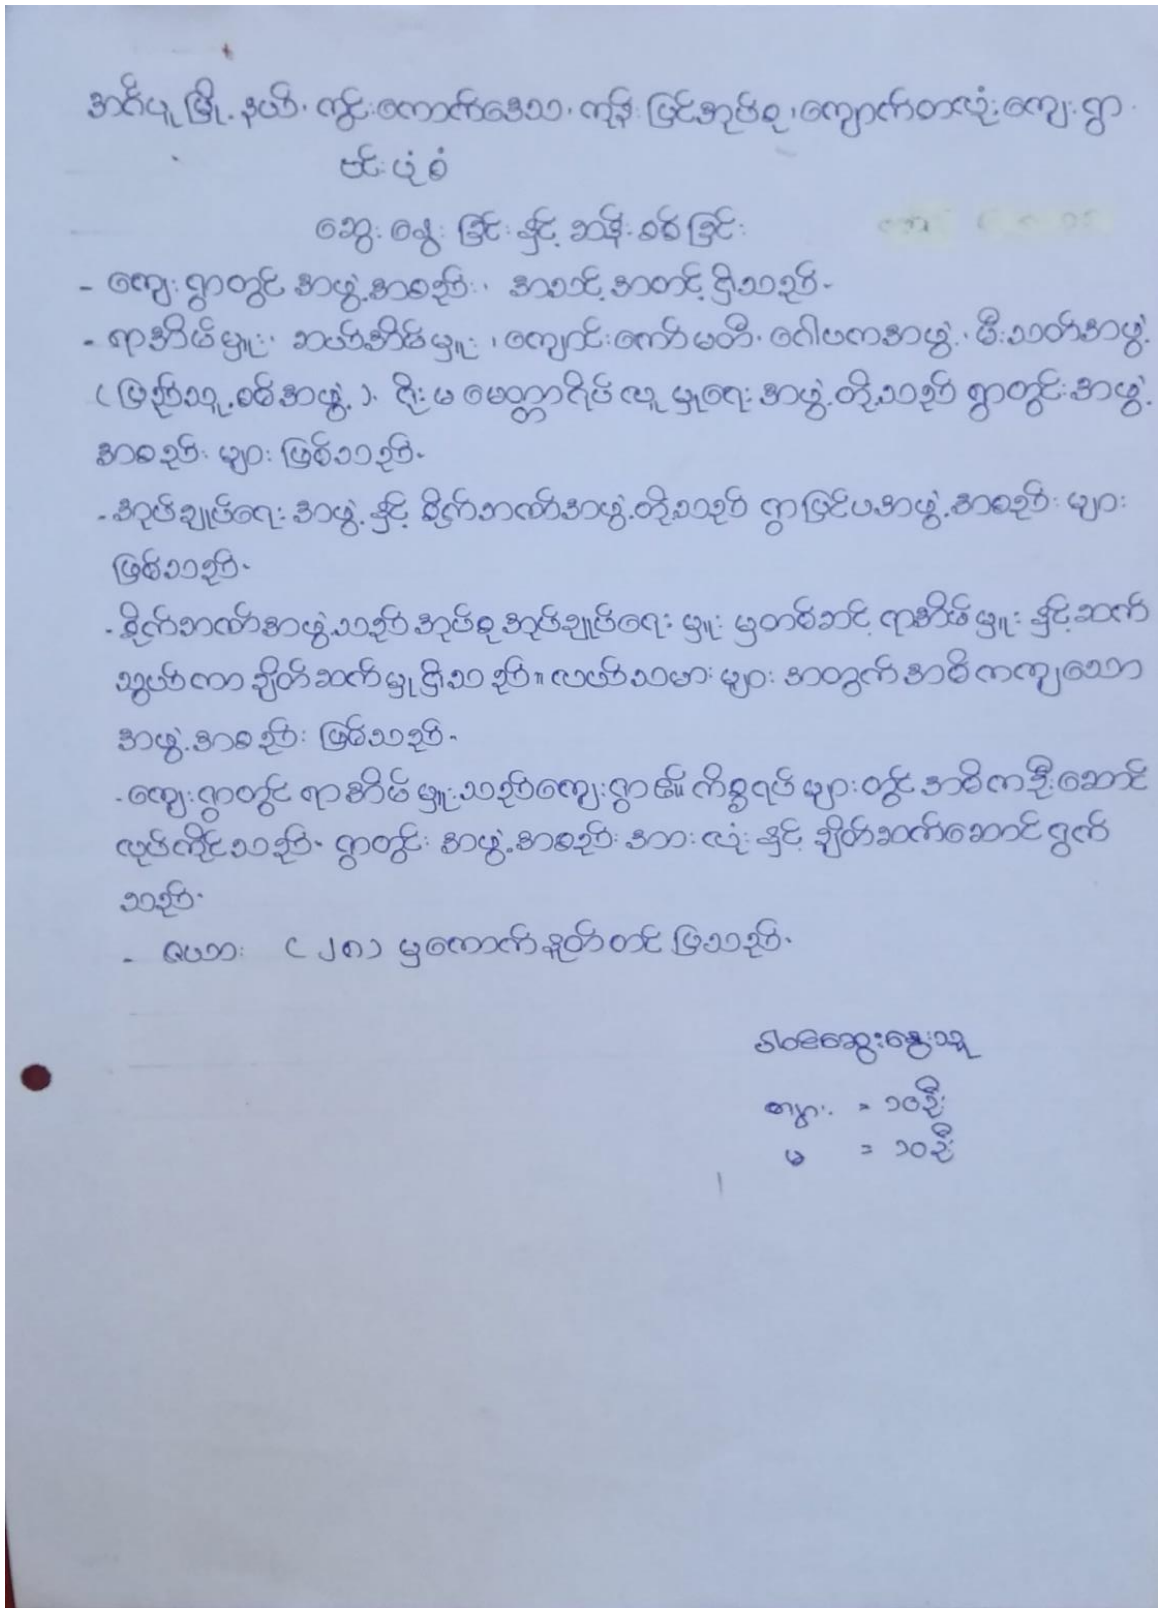 အင်္ဂပူမြို့နယ်၊ ကွင်းကောက်ဒေသ၊ ကုန်းပြင်အုပ်စု၊ ကျောက်တလုံးကျေးရွာ
ဗင်းပုံစံ
ဆွေးနွေးခြင်းနှင့် ဆန်းစစ်ခြင်း
- ကျေးရွာတွင် အဖွဲ့အစည်း၊ အသင့်အတင့်ရှိသည်။
- ရာအိမ်မှူး၊ ဆယ်အိမ်မှူး၊ ကျောင်းကော်မတီ၊ ဂေါပကအဖွဲ့၊ မီးသတ်အဖွဲ့
(ပြည်သူ့စစ်အဖွဲ့)၊ ရိုးမမေတ္တာရိပ်လူမှုရေးအဖွဲ့တို့သည် ရွာတွင်းအဖွဲ့
အစည်းများ ဖြစ်သည်။
- အုပ်ချုပ်ရေးအဖွဲ့နှင့် စိုက်ဘဏ်အဖွဲ့တို့သည် ရွာပြင်ပအဖွဲ့အစည်းများ
ဖြစ်သည်။
- စိုက်ဘဏ်အဖွဲ့သည် အုပ်စုအုပ်ချုပ်ရေးမှူးမှတစ်ဆင့် ရာအိမ်မှူးနှင့်ဆက်
သွယ်ကာ ချိတ်ဆက်မှုရှိသည်။ လယ်သမားများအတွက်အဓိကကျသော
အဖွဲ့အစည်း ဖြစ်သည်။
- ကျေးရွာတွင် ရာအိမ်မှူးသည်ကျေးရွာ၏ ကိစ္စရပ်များတွင် အဓိကဦးဆောင်
လုပ်ကိုင်သည်။ ရွာတွင်းအဖွဲ့အစည်းအားလုံးနှင့် ချိတ်ဆက်ဆောင်ရွက်
သည်။
- ဇယား (၂၈) မှကောက်နုတ်တင်ပြသည်။
ပါဝင်ဆွေးနွေးသူ
ကျား = ၁၀ဦး
မ = ၁၀ဦး